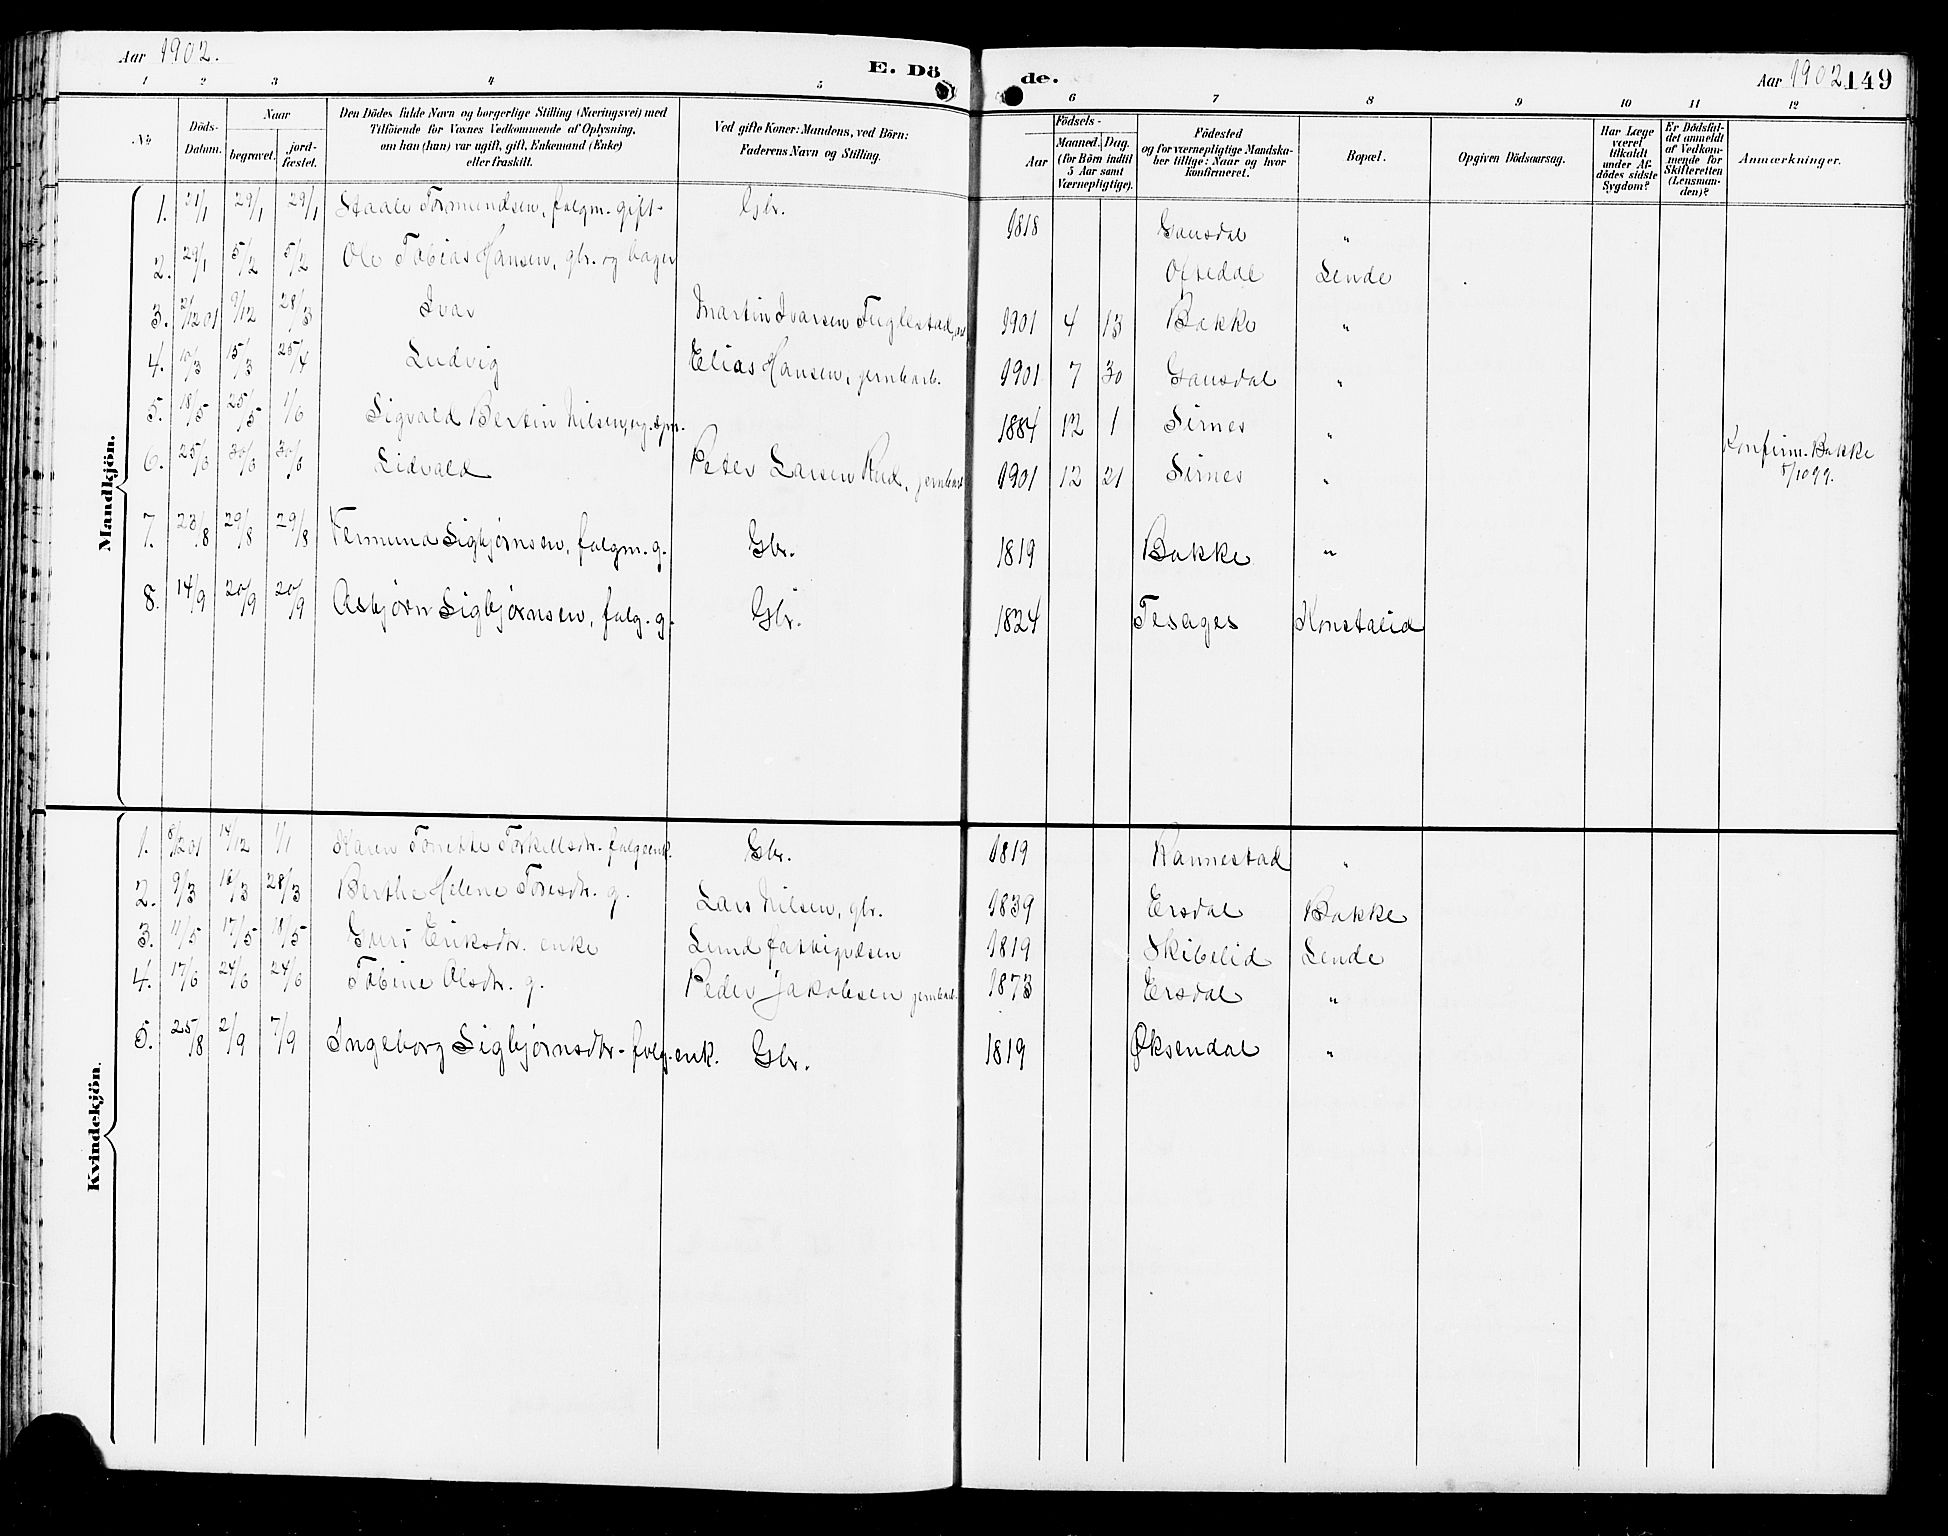 Aar 1902.
E. Dö de.
Aar 1902. 149
1 2 3 4 5 6 7 8 9 10 11 12
No.
Döds-Datum.
Naar
begravet.
jord-fæstet.
Den Dödes fulde Navn og borgerlige Stilling (Næringsvei) med
Tilföiende for Voxnes Vedkommende af Oplysning,
om han (hun) var ugift, gift, Enkemand (Enke)
eller fraskilt.
Ved gifte Koner: Mandens, ved Börn:
Faderens Navn og Stilling.
Födsels-
Aar
Maaned. Dag.
(for Börn indtil
5 Aar samt
Værnepligtige).
Födested
og for værnepligtige Mandska-
ber tillige: Naar og hvor
konfirmeret.
Bopæl.
Opgiven Dödsaarsag.
Har Læge
været
tilkaldt
under Af-
dødes sidste
Sygdom?
Er Dödsfal-
det anmeldt
af Vedkom-
mende for
Skifteretten
(Lensman-
den)?
Anmærkninger.
Mandkjön.
1. 21/1 29/1 29/1 Staale Tormundsen, folgm. gift- Gbr. 1818 Gausdal "
2. 29/1 5/2 5/2 Ole Tobias Hansen, gbr. og bager Oftedal Lende
3. 2/12 01 9/12 28/3 Ivar Martin Ivarsen Fuglestad, 1901 4 13 Bakke "
4. 10/3 15/3 25/4 Ludvig Elias Hansen, jernbarb. 1901 7 30 Gausdal "
5. 18/5 25/5 1/6 Sigvald Bertin Nilsen, ug. 1884 12 1 Sirnes " Konfirm. Bakke 8/10 99.
6. 25/6 30/6 30/6 Sidvald Peder Larsen Rud, jernbarb 1901 12 21 Sirnes "
7. 23/8 29/8 29/8 Vermund Sigbjørnsen, folgm. g. Gbr. 1819 Bakke "
8. 14/9 20/9 20/9 Asbjørn Sigbjørnsen, folg. g. Gbr. 1824 Tesages Konstalid
Kvindekjön.
1. 8/12 01 14/12 1/1 Karen Tonette Torkellsdtr. folgeenk. Gbr. 1819 Rannestad "
2. 9/3 16/3 28/3 Berthe Helene Toresdtr. g. Lars Nilsen, gbr. 1839 Ersdal Bakke
3. 11/5 17/5 18/5 Guri Eriksdtr. enke Lend fattigvæsen 1819 Skibelid Lende
4. 17/6 24/6 24/6 Tobine Olsdtr. g. Peder Jakobsen jernbarb. 1873 Ersdal "
5. 25/8 2/9 7/9 Ingeborg Sigbjørnsdtr- folg. enk. Gbr. 1819 Øksendal "